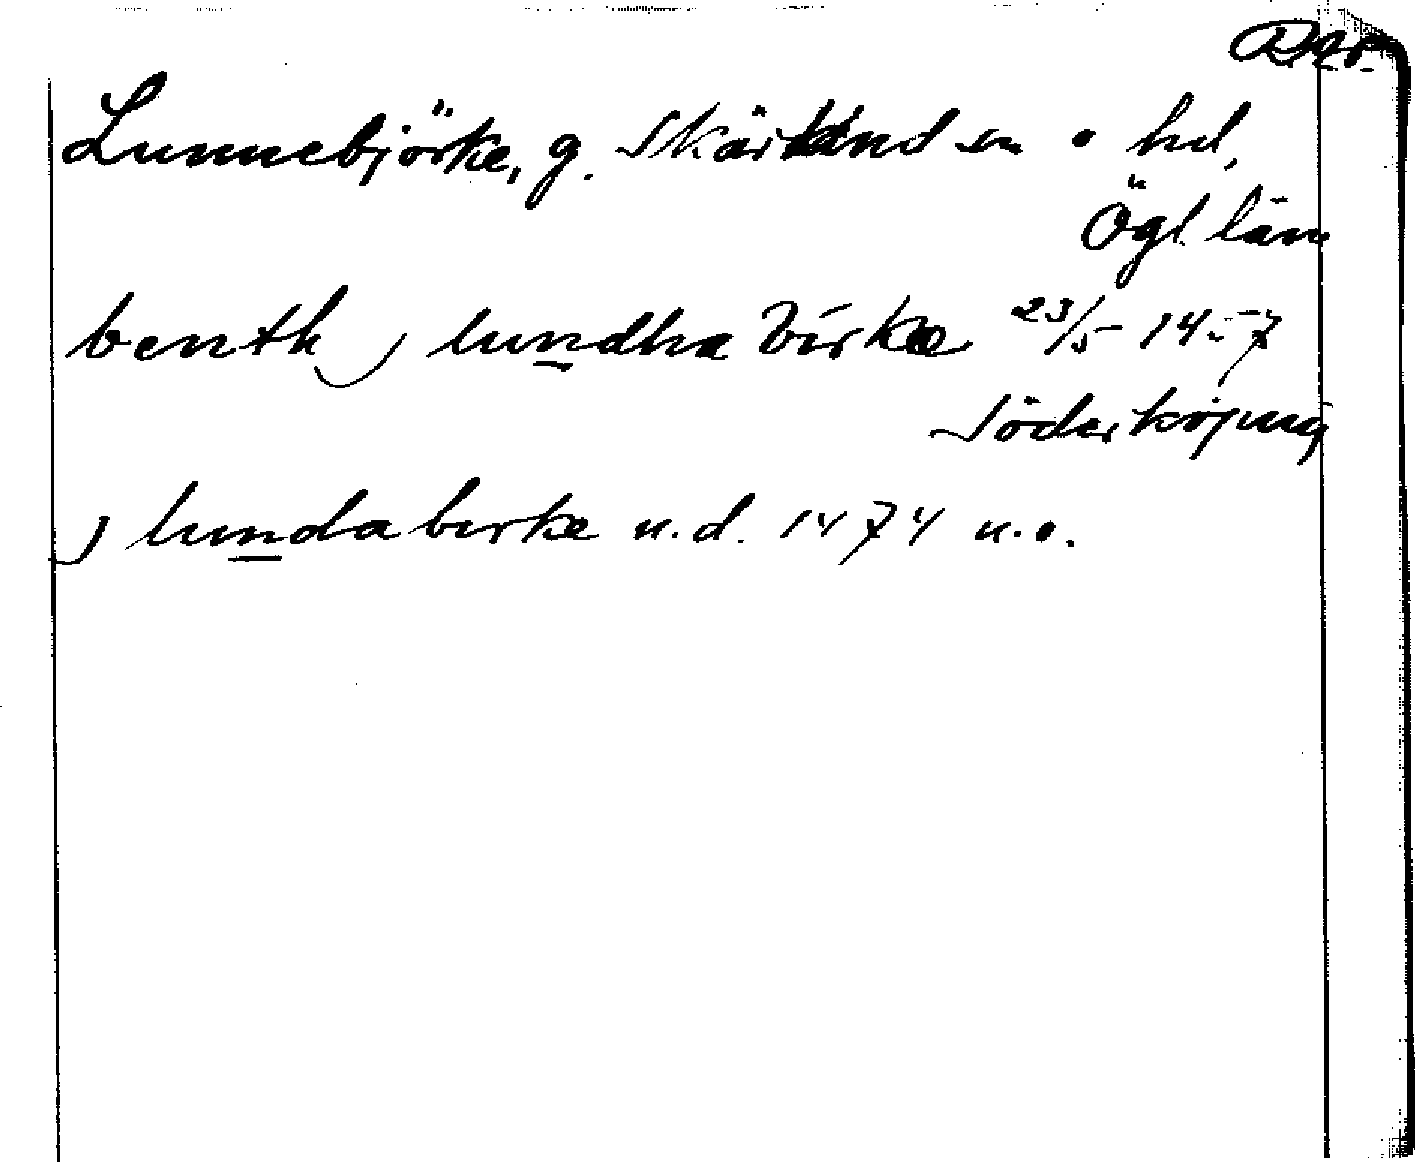 Lunnebjörke, g. Skärkind sn o hd,
Ögl län
benth j lundha birke 23/5 1457
Söderköping
j lunda birke u.d. 1474 u.o.